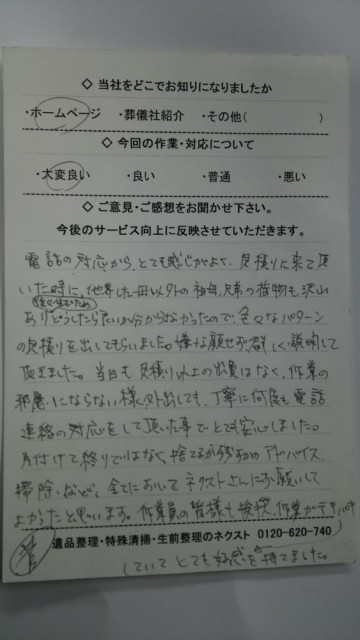 ◇ 当社をどこでお知りになりましたか
・ホームページ ・葬儀社紹介 ・その他( )
◇ 今回の作業・対応について
・大変良い ・良い ・普通 ・悪い
◇ ご意見・ご感想をお聞かせ下さい。
今後のサービス向上に反映させていただきます。
電話の対応から、とても感じがよく、見積りに来て頂
いた時に、他界した母以外の祖母、兄弟の荷物も沢山
ありどうしたら良いか分からなかったので、色々なパターン
の見積りを出してもらいました。嫌な顔せず、詳しく説明して
頂きました。当日も見積り以上の出費はなく、作業の
邪魔にならない様外出しても、丁寧に何度も電話
連絡の対応をして頂いた事でとても安心しました。
片付けて終りではなく、捨てるか残すかのアドバイス、
掃除、など、全てにおいてネクストさんにお願いして
よかったと思います。作業員の皆様も挨拶、作業がテキパキ
遺品整理・特殊清掃・生前整理のネクスト 0120-620-740
していてとても好感を持てました。